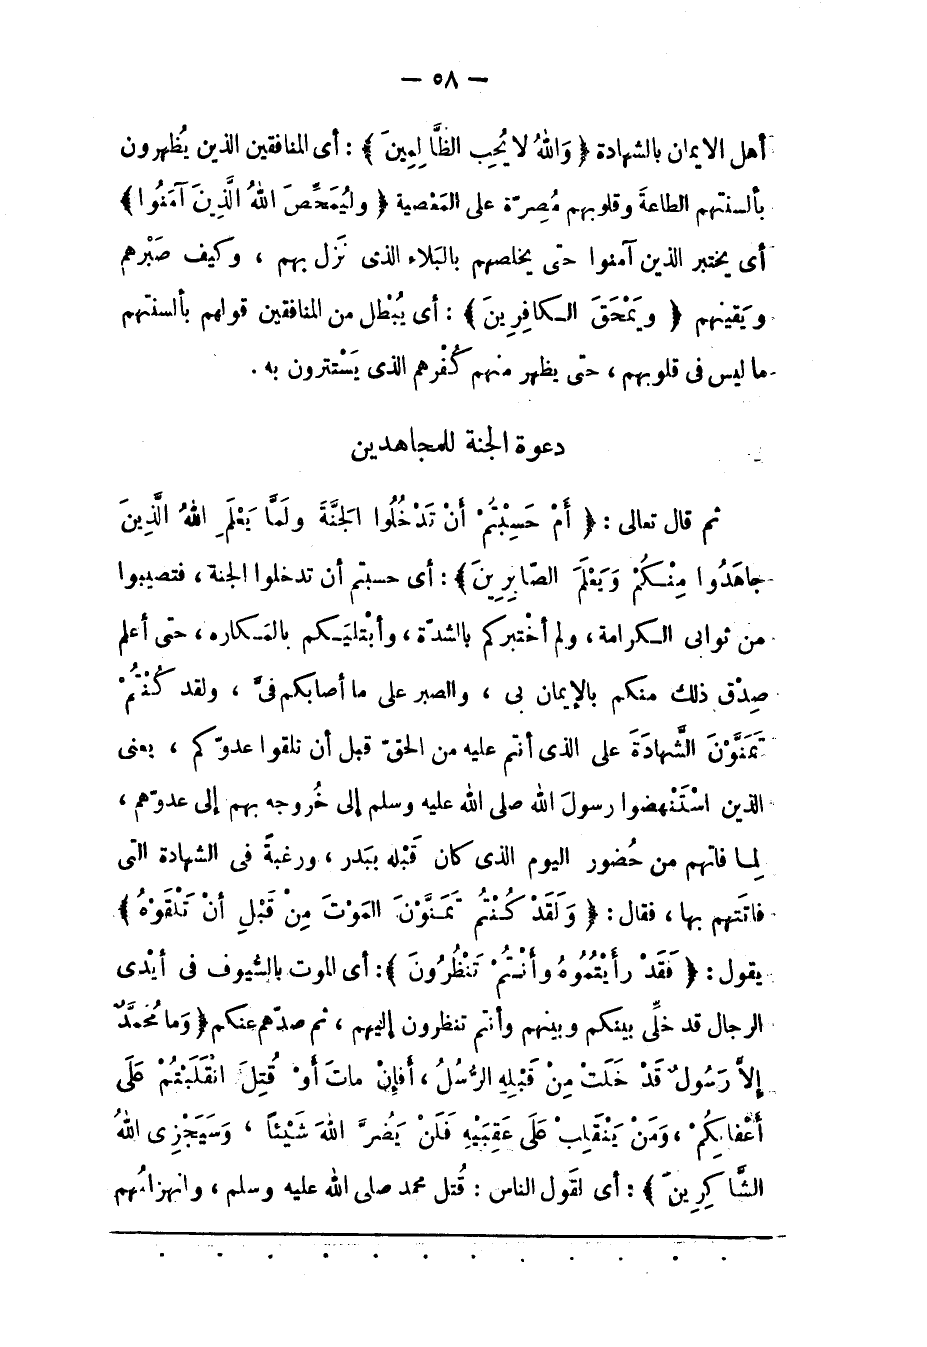 — ٥٨ —
أهل الايمان بالشهادة ﴿ وَاللهُ لا يُحِب الظَّالِمِينَ ﴾ : أى المنافقين الذين يُظهرون
بألسنتهم الطاعةَ وقلوبهم مُصِرّة على المَعْصية ﴿ ولِيُمَحِّصَ اللهُ الَّذِينَ آمَنُوا ﴾
أى يختبر الذين آمنوا حتى يخلصهم بالبَلاء الذى نَزل بهم ، وكيف صَبْرهم
ويَقينهم ﴿ ويَمْحَقَ الـكافِرِينَ ﴾ : أى يُبْطل من المنافقين قولهم بألسنتهم
ما ليس فى قلوبهم ، حتى يظهر منهم كُفْرهم الذى يَسْتترون به .
دعوة الجنة للمجاهدين
ثم قال تعالى : ﴿ أَمْ حَسِبْتُمْ أَنْ تَدْخُلُوا الجَنَّةَ ولَمَّا يَعْلَمِ اللهُ الَّذِينَ
جاهَدُوا مِنْـكُمْ وَيَعْلَمَ الصّابِرِينَ ﴾ : أى حسبتم أن تدخلوا الجنة ، فتصيبوا
من ثوابى الـكرامة ، ولم أخْتبركم بالشدّة ، وأبْتليَـكم بالمَـكاره ، حتى أعلم
صِدْق ذلك منكم بالإيمان بى ، والصبر على ما أصابكم فىَّ ، ولقد كُنْتُمْ
تَمَنَّوْنَ الشَّهادَةَ على الذى أنتم عليه من الحقّ قبل أن تلقوا عدوّكم ، يعنى
الذين اسْتَنْهضوا رسولَ الله صلى الله عليه وسلم إلى خُروجه بهم إلى عدوّهم ،
لِمـا فاتهم من حُضور اليوم الذى كان قَبْله ببَدر ، ورغبةً فى الشهادة التى
فاتَتهم بها ، فقال : ﴿ وَلَقَدْ كُـنْتُمْ تَمَـنَّوْنَ المَوْتَ مِنْ قَبْلِ أنْ تَلْقَوْهُ ﴾
يقول : ﴿ فَقَدْ رأَيْتُمُوهُ وأَنْـتُمْ تَنْظُرُونَ ﴾ : أى الموت بالسُّيوف فى أيْدى
الرجال قد خلِّى بينكم وبينهم وأنتم تنظرون إليهم ، ثم صدّهم عنكم ﴿ وَما مُحَمَّدٌ
إلاَّ رَسُولٌ قَدْ خَلَتْ مِنْ قَبْلِهِ الرُّسُلُ ، أَفإِنْ ماتَ أوْ قُتِلَ انْقَلَبْتُمْ عَلَى
أَعْقابِكُمْ ، وَمَنْ يَنْقَلِبْ عَلَى عَقِبَيْهِ فَلَنْ يَضُرَّ اللهَ شَيْئاً ، وَسَيَجْزِى اللهُ
الشَّاكِرِينَ ﴾ : أى لقَول الناس : قُتل محمد صلى الله عليه وسلم ، وانهزامُهم